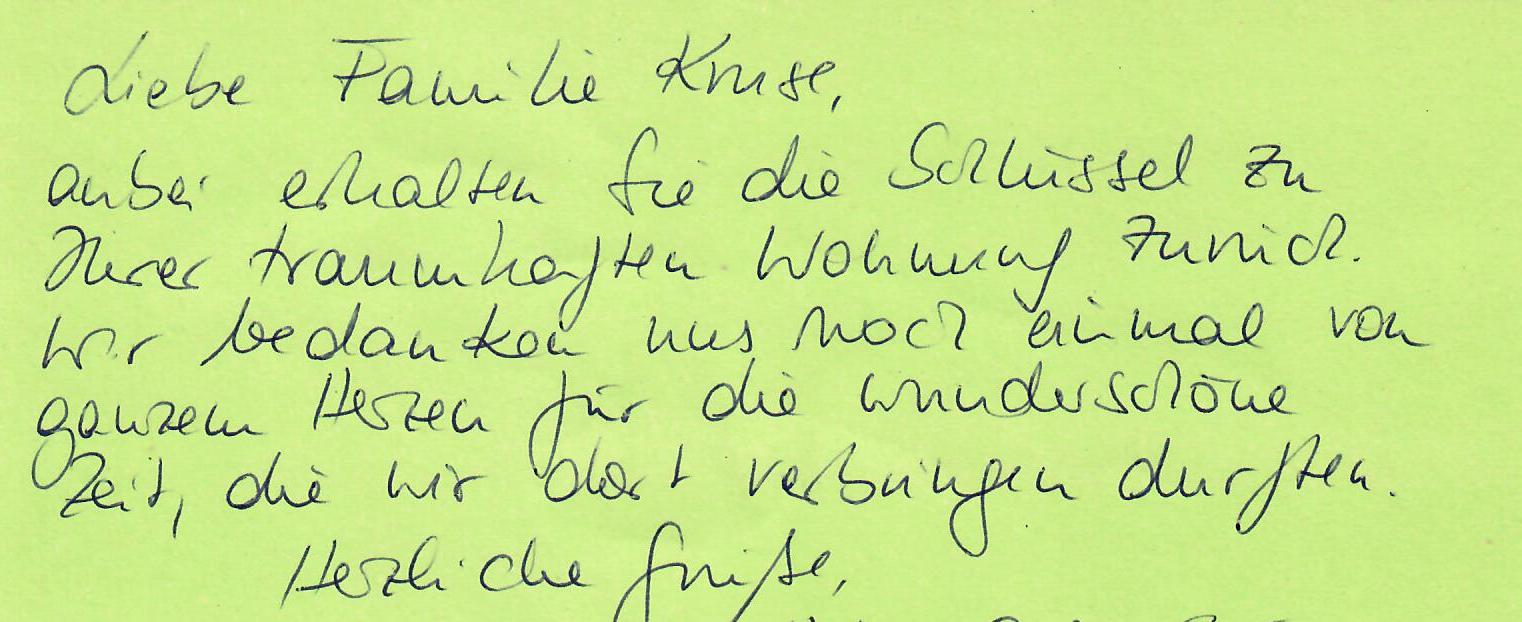 Liebe Familie Kruse,
anbei erhalten Sie die Schlüssel zu
Ihrer traumhaften Wohnung zurück.
Wir bedanken uns noch einmal von
ganzem Herzen für die wunderschöne
Zeit, die wir dort verbringen durften.
Herzliche Grüße,